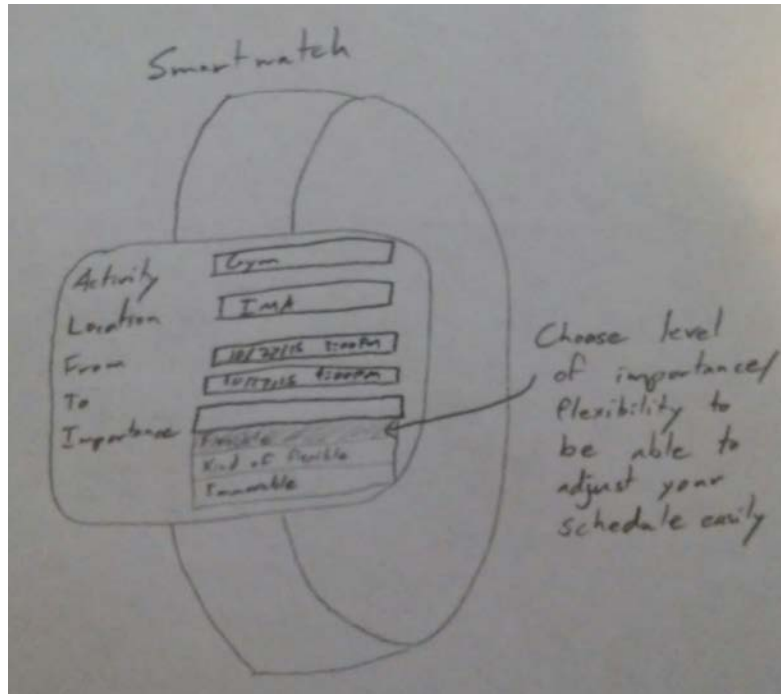 Smartwatch
Activity Gym
Location IMA
From
To
Importance
Flexible
Kind of flexible
Immovable
Choose level
of importance/
flexibility to
be able to
adjust your
schedule easily